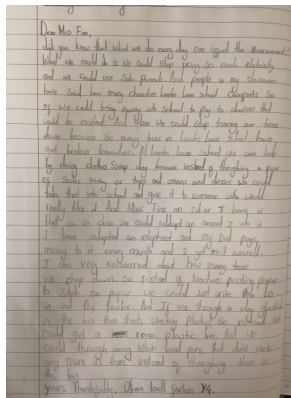 Dear Miss Finn,
did you know that what we do every day can affect the environment
What we could do is we could stop using so much electricity
and we could use Solar Pannels. And people in my classroom
have said how many chocolate Lambs Lane School
If we could bring money into School to pay to charities that
would be And also we could stop tearing our trees
down because So many trees in Lambs Lane School have
got broken branches. At Lambs Lane School we can help
by doing clothes Swap day because instead of throughing a pair
os away or tops and Jeans and dresses we could
take that into school and give it to someone who would
really like it. And Miss Finn an Idier I have is
that as a class we could addopt an animal I do it
I have adopted an elephant and My Dad pays
money to it every month and I get med aswell.
I am very concerned about how many trees
we chop down. So instead of teachers printing paper
to stick on paper we could just write the LO
in and the faster. And If we through a clay
in the bin then thats Wasting Plastic So instead we
could get a reuse plastic bin. And we
could through away white board pens that dont work
any more in there instead of throughing them in
the bin
yours Thankfully, Y4.